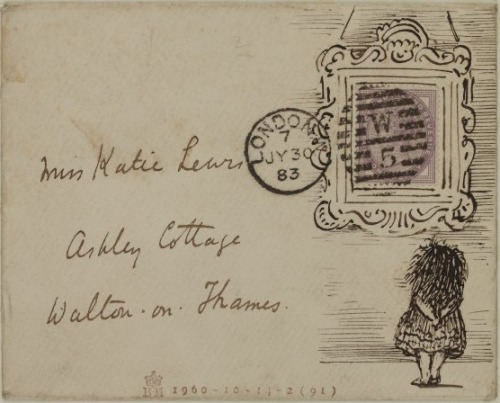 Miss Katie Lewis
Ashley Cottage
Walton-on-Thames.
LONDON
7
JY 30
83
W
5
BM 1960-10-14-2(91)